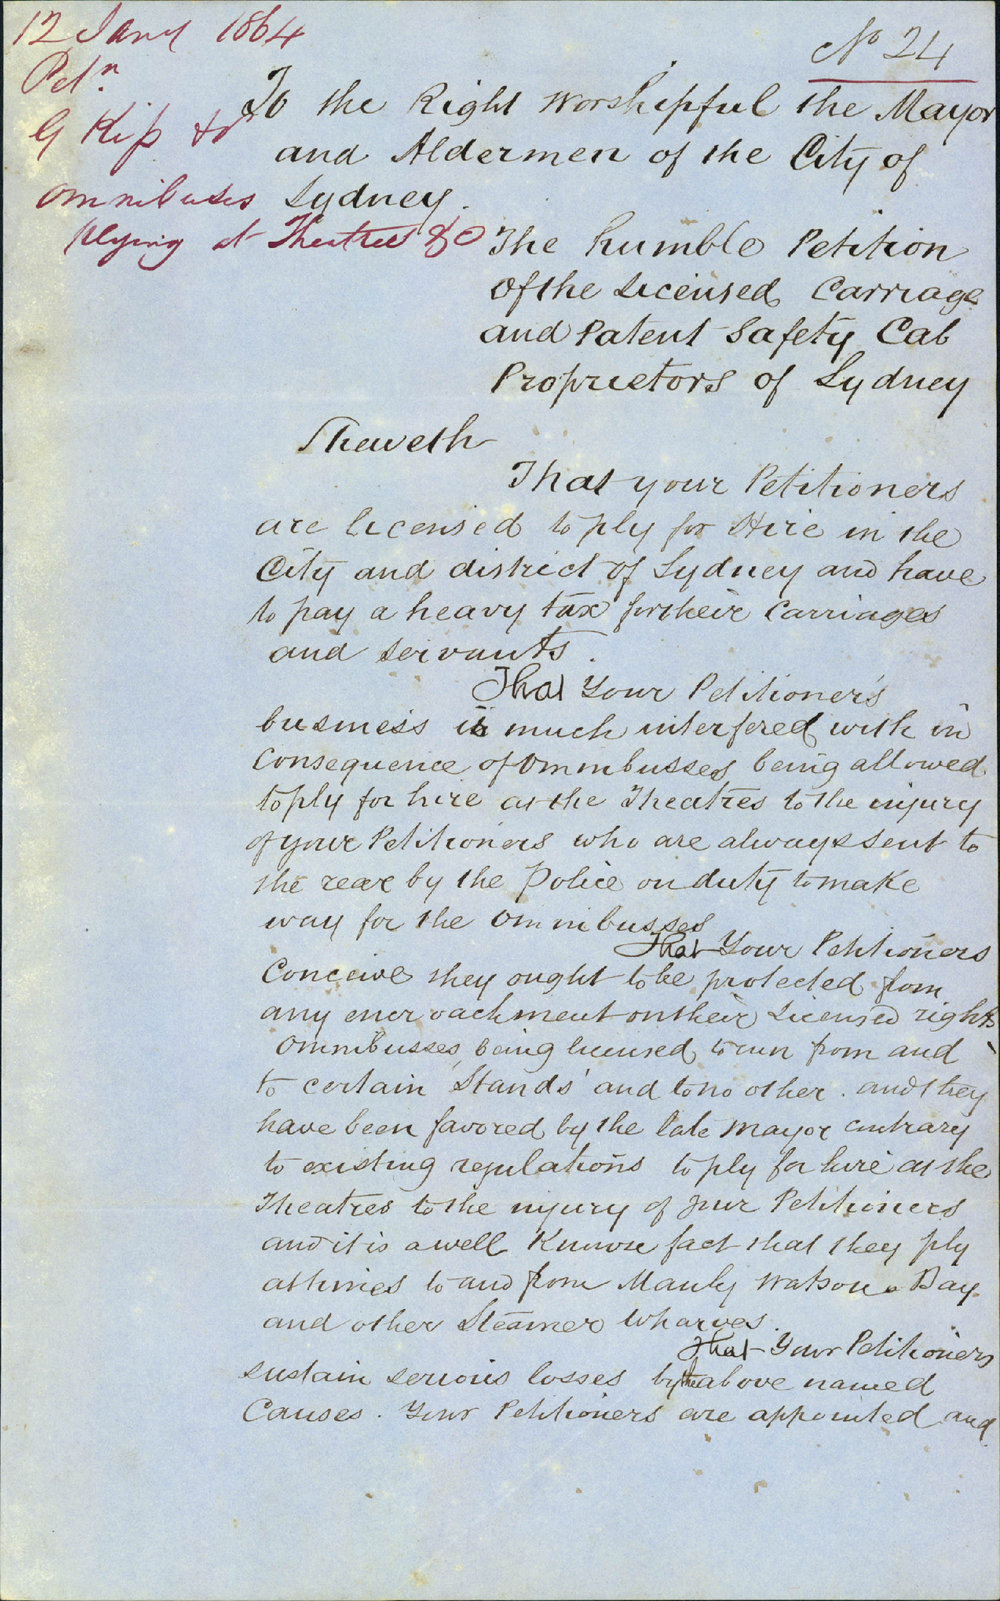 12 Jany 1864
No 24
Petn
G Kip &
Omnibuses
plying at Theatres &c
To the Right Worshipful the Mayor
and Aldermen of the City of
Sydney.
The humble Petition
Of the Licensed Carriage
and Patent Safety Cab
Proprietors of Sydney
Sheweth
That your Petitioners
are licensed to ply for Hire in the
City and district of Sydney and have
to pay a heavy tax for their Carriages
and servants.
That Your Petitioners
business is much interfered with in
Consequence of Omnibusses being allowed
to ply for hire at the Theatres to the injury
of your Petitioners who are always sent to
the rear by the Police on duty to make
way for the Omnibusses
That Your Petitioners
Conceive they ought to be protected from
any encroachment on their Licensed rights
Omnibusses being licensed to run from and
to certain 'Stands' and to no other. and they
have been favored by the late Mayor contrary
to existing regulations to ply for hire at the
Theatres to the injury of your Petitioners
and it is a well Known fact that they ply
at times to and from Manly Watsons Bay
and other Steamer Wharves.
That Your Petitioners
sustain serious losses by the above named
Causes. Your Petitioners are appointed and